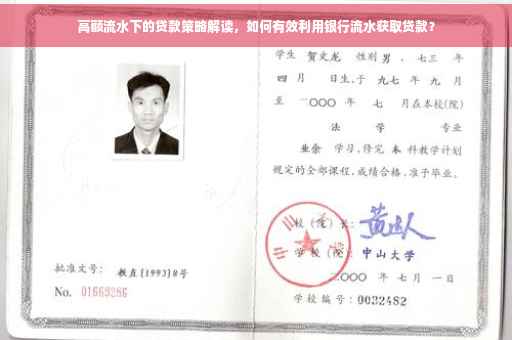 高额流水下的贷款策略解读，如何有效利用银行流水获取贷款？
学生 贺文龙 性别 男，七三 年
四 月 日生,于 九七 年 九 月
至 二〇〇〇 年 七 月在本校(院)
法 学 专业
业余 学习,修完 本 科教学计划
规定的全部课程,成绩合格,准予毕业。
校(院)长:
学校(院): 中山大学
二〇〇〇 年 七 月 一 日
学校编号: 0032482
批准文号: 教直(1993)8号
No. 01669286